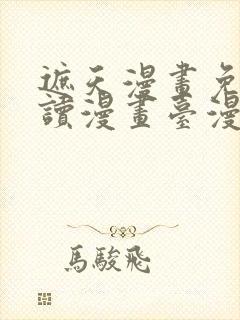 遮天漫畫免
讀漫畫臺漫
馬駿飛